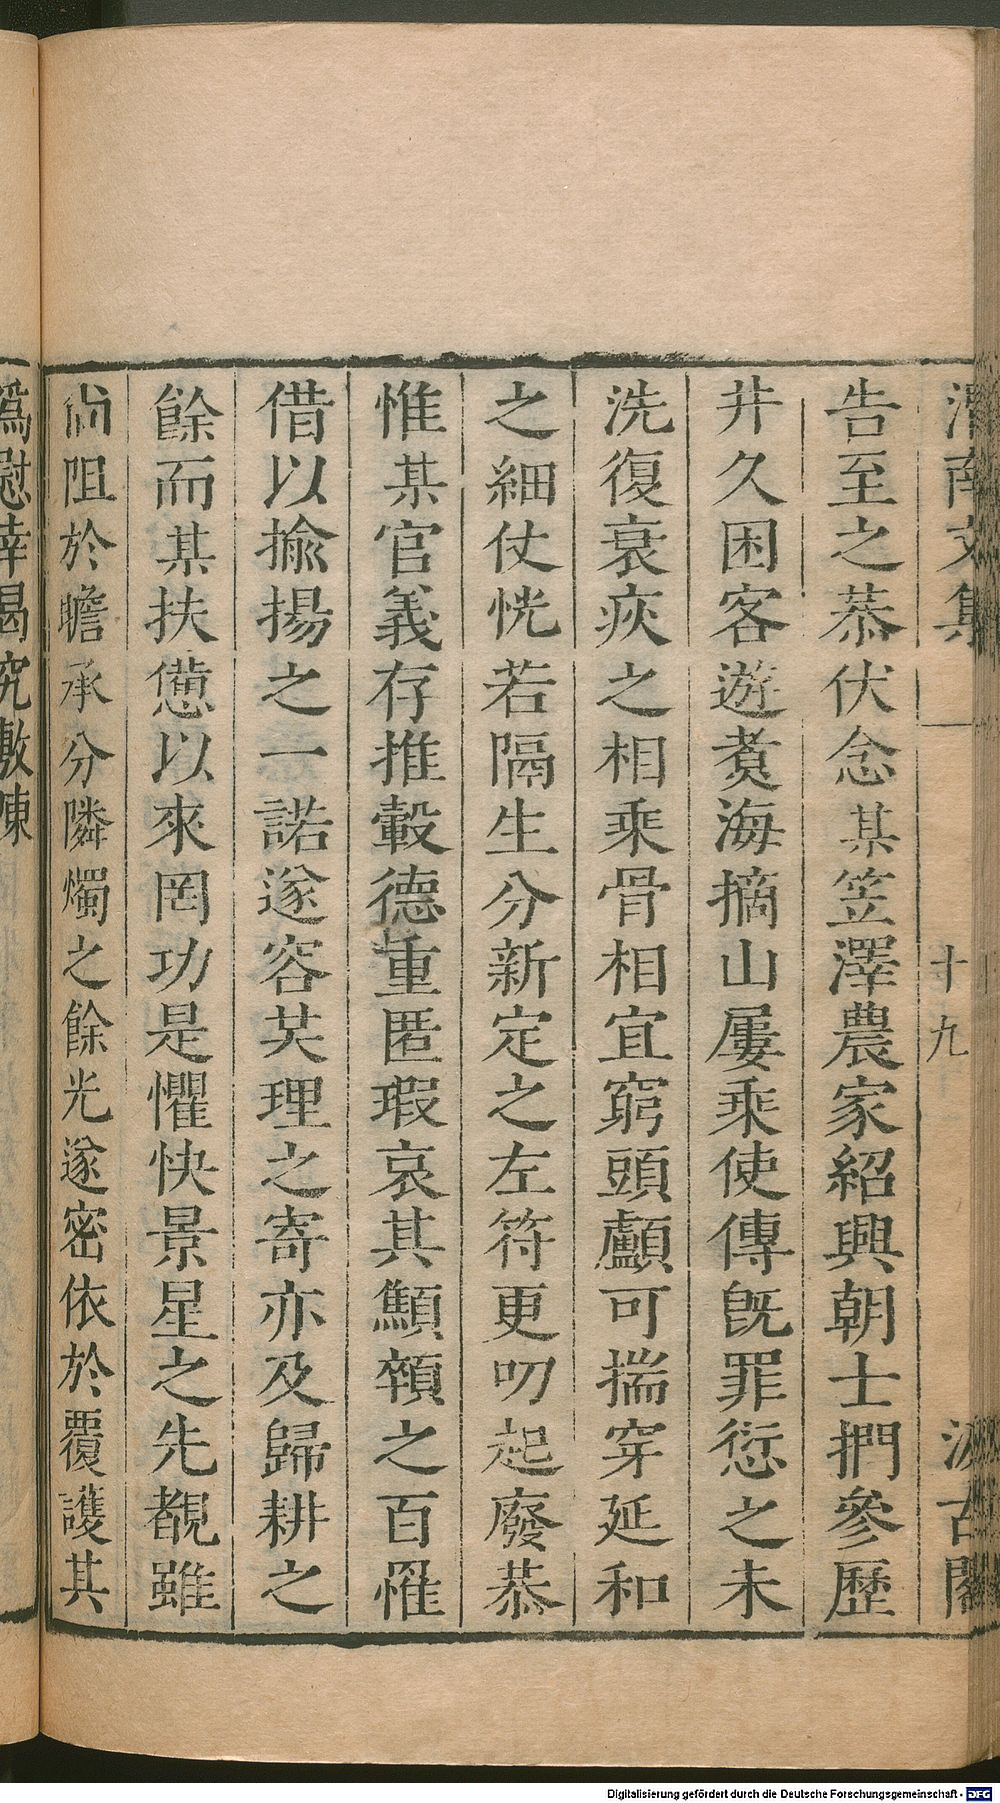 渭南文集 十九 汲古閣
告至之恭伏念某笠澤農家紹興朝士捫參歷
井久困客遊煑海摘山屢乘使傳旣罪愆之未
洗復衰疾之相乘骨相宜窮頭顱可揣穿延和
之細仗恍若隔生分新定之左符更叨起廢恭
惟某官義存推轂德重匿瑕哀其顦顇之百罹
借以揄揚之一諾遂容共理之寄亦及歸耕之
餘而某扶憊以來罔功是懼快景星之先覩雖
尙阻於瞻承分隣燭之餘光遂密依於覆護其
爲慰幸曷究敷陳
Digitalisierung gefördert durch die Deutsche Forschungsgemeinschaft - DFG